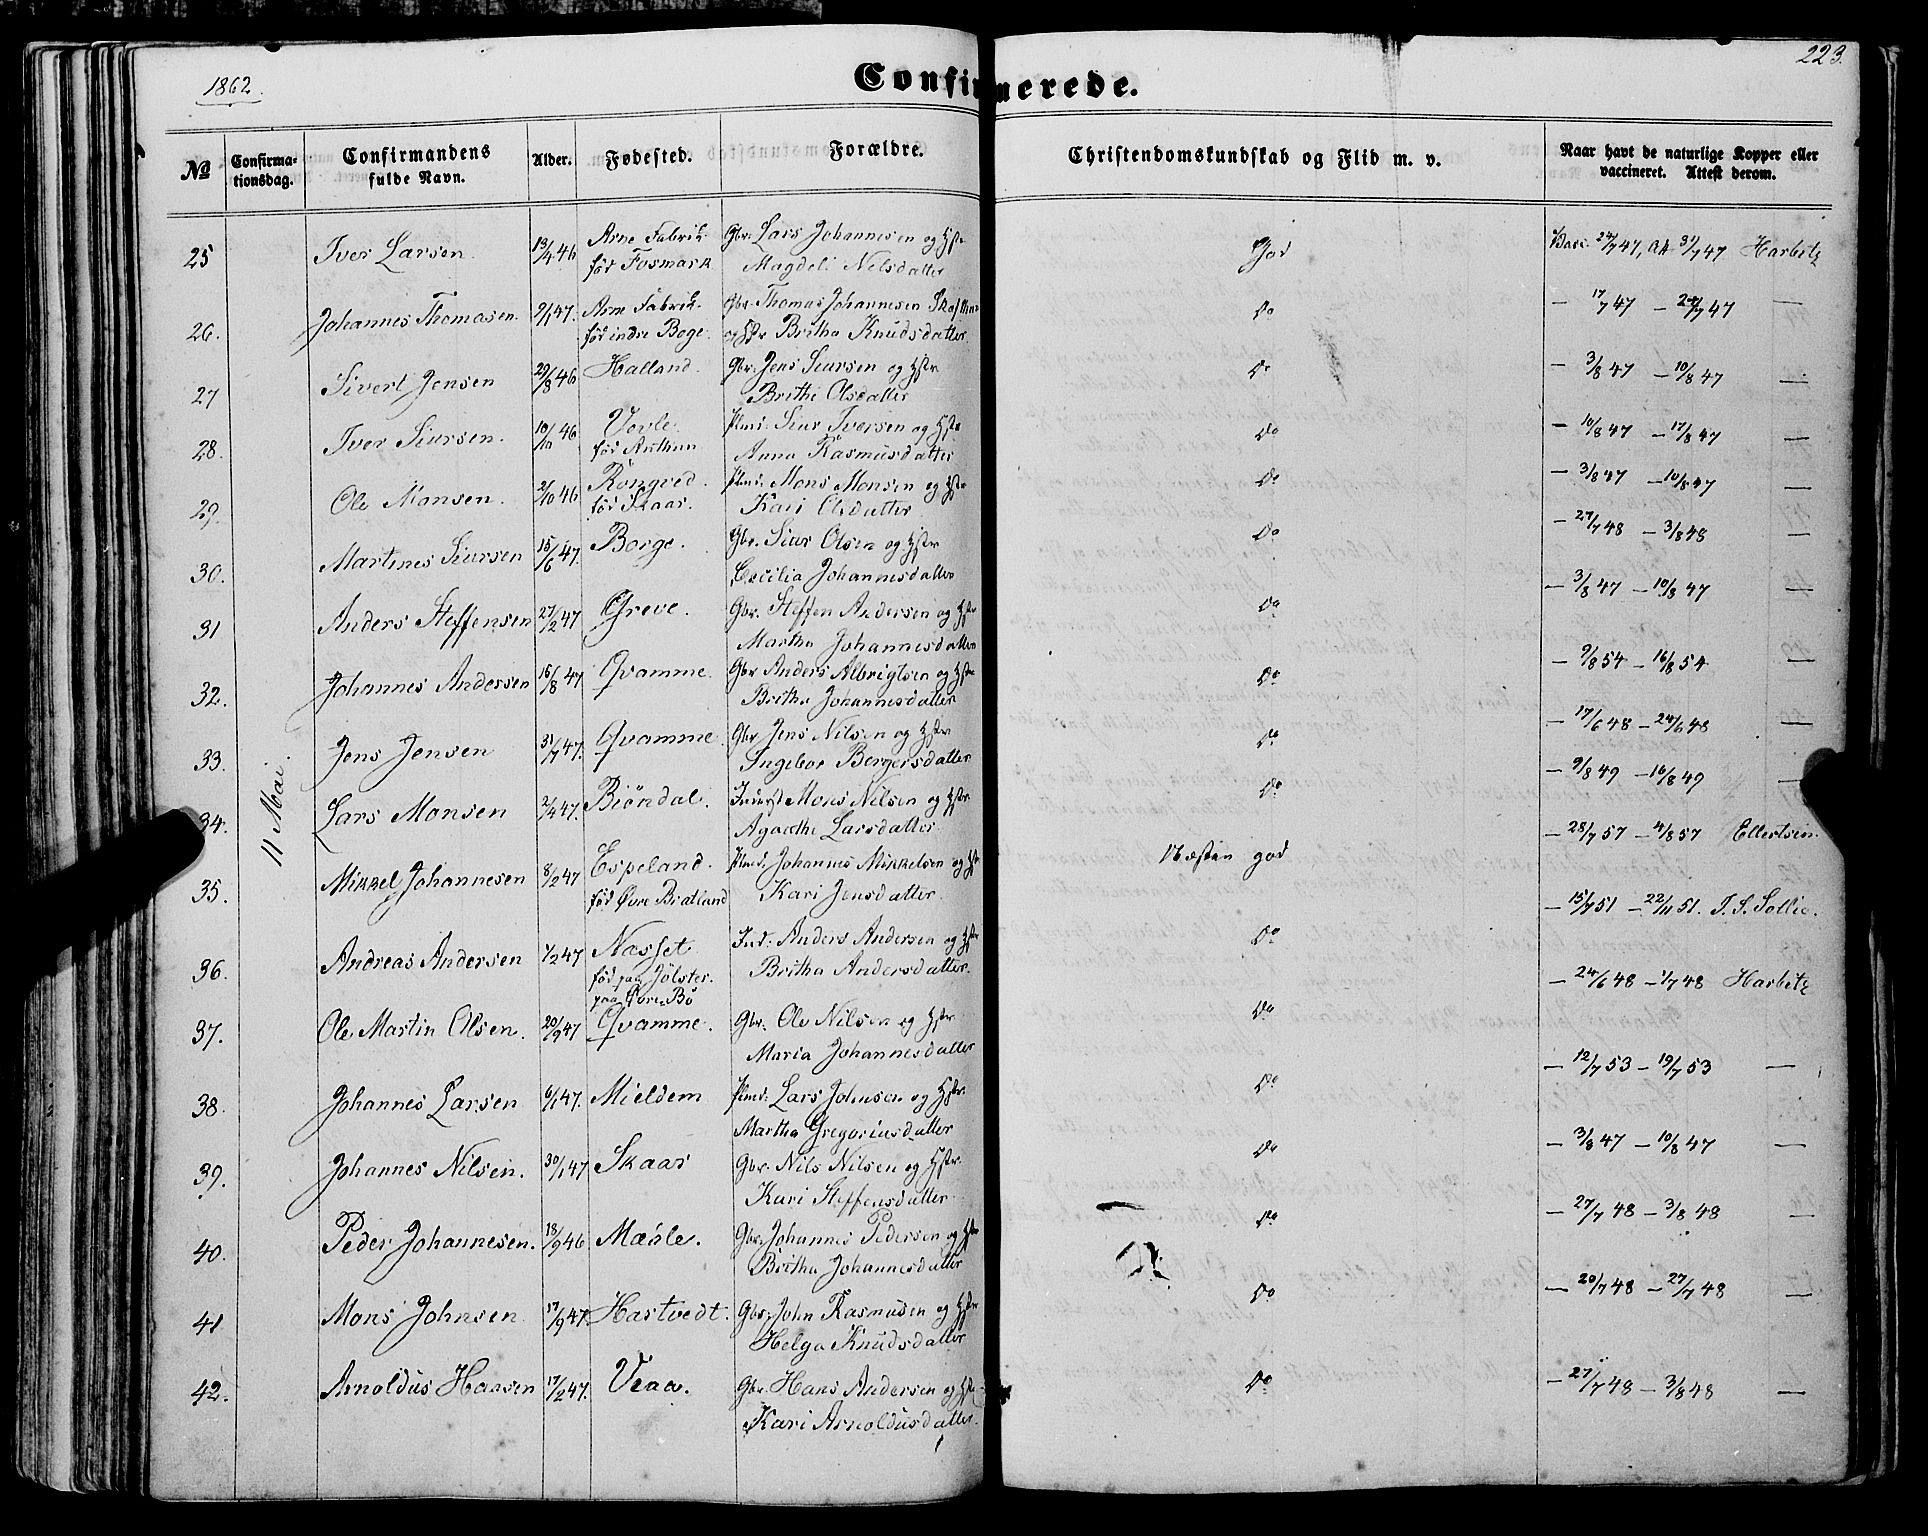 1862.
223.
Confirmerede.
No
Confirma-
tionsdag.
Confirmandens
fulde Navn.
Alder.
Fødested.
Forældre.
Christendomskundskab og Flid m. v.
Naar havt de naturlige Kopper eller
vaccineret. Attest derom.
11 Mai.
25 Iver Larsen 13/4 46 Arne Fabrik Gbr. Lars Johannesen og Hstr God Vacc. 24/7 47, Att. 31/7 47 Harbitz
før Fosmark Magdeli Nilsdatter
26. Johannes Thomasen 9/1 47. Arne Fabrik Gbr. Thomas Johannesen Do — 17/7 47 — 24/7 47 —
før indre Boge og Hstr Britha Knudsdatter
27 Sivert Jensen 29/8 46 Halland. Gbr. Jens Siursen og Hstr Do — 3/8 47 — 10/8 47 —
Brithe Olsdatter
28. Iver Siursen. 10/10 46 Vevle Plmd. Siur Iversen og Hstr Do — 10/8 47 — 17/8 47 —
før Anthun Anna Rasmusdatter
29. Ole Monsen. 2/10 46 Röngved. Plmd. Mons Monsen og Hstr Do — 3/8 47 — 10/8 47 —
før Skaar. Kari Olsdatter
30. Martines Siursen 15/6 47. Borge. Gbr. Siur Olsen og Hstr Do — 27/7 48 — 3/8 48 —
Cecilia Johannesdatter
31 Anders Steffensen 27/2 47 Greve. Gbr. Steffen Andersen og Hstr Do — 3/8 47 — 10/8 47 —
Martha Johannesdatter
32. Johannes Andersen 15/8 47 Qvamme. Gbr Anders Albrigtsen og Hstr Do — 9/8 54 — 16/8 54 —
Britha Johannesdatter
33. Jens Jensen 31/7 47. Qvamme. Gbr Jens Nilsen og Hstr Do — 17/6 48 — 24/6 48
Ingebor Bergersdatter
34. Lars Monsen 2/4 47. Biöndal. Mons Nilsen og Hstr Do — 9/8 49 — 16/8 49 —
Agaethe Larsdatter
35. Mikkel Johannesen 8/2 47 Espeland. Plmd. Johannes Mikkelsen og Hstr Næsten god — 28/7 57 — 4/8 57 Ellertsen
før Øvre Biatland Kari Jensdatter
36. Andreas Andersen 1/2 47 Næsset Ind: Anders Andersen og Hstr Do — 15/7 51 — 22/11 51. T. S. Sollie.
fød paa Jölster. Britha Andersdatter.
paa Øvre Bö
37. Ole Martin Olsen. 20/9 47 Qvamme. Gbr. Ole Nilsen og Hstr Do — 24/6 48 — 1/7 48 Harbitz
Maria Johannesdatter
38. Johannes Larsen 6/1 47. Mieldem Plmd. Lars Johnsen og Hstr. Do — 12/7 53 — 19/7 53 —
Martha Gregoriusdatter
39. Johannes Nilsen. 30/1 47 Skaar Gbr. Nils Nilsen og Hstr. Do — 3/8 47 — 10/8 47 —
Kari Steffensdatter
40. Peder Johannesen. 18/9 46 Mæsle. Gbr. Johannes Pedersen og Hstr Do — 27/7 48 — 3/8 48 —
Britha Johannesdatter
41 Mons Johnsen 17/9 47 Hartvedt. Gbr. John Rasmusen og Hstr Do — 20/7 48 — 27/7 48 —
Helga Knudsdatter
42. Arnoldus Hansen 17/2 47. Veaa. Gbr. Hans Andersen og Hstr Do — 27/7 48 — 3/8 48 —
Kari Arnoldusdatter.